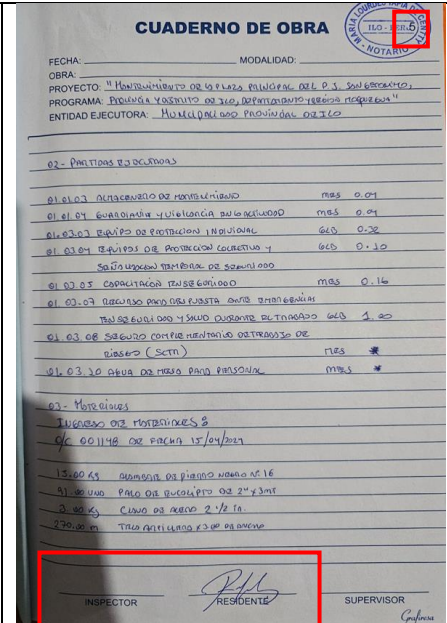 CUADERNO DE OBRA
MARIA LOURDES
ILO - PERÚ
NOTARIO
5
FECHA: MODALIDAD:
OBRA:
PROYECTO: "MANTENIMIENTO DE LA PLAZA PRINCIPAL DEL P.J. SAN GERONIMO,
PROGRAMA: PROVINCIA Y DISTRITO DE ILO, DEPARTAMENTO Y REGION MOQUEGUA"
ENTIDAD EJECUTORA: MUNICIPALIDAD PROVINCIAL DE ILO
02- PARTIDAS EJECUTADAS
01.01.03 ALMACENERO DE MANTENIMIENTO mes 0.04
01.01.04 GUARDIANIA Y VIGILANCIA EN LA ACTIVIDAD mes 0.04
01.03.03 EQUIPO DE PROTECCION INDIVIDUAL GLB 0.32
01.03.04 EQUIPOS DE PROTECCION COLECTIVO Y GLB 0.10
SEÑALIZACION TEMPORAL DE SEGURIDAD
01.03.05 CAPACITACION EN SEGURIDAD mes 0.16
01.03.07 RECURSO PARA RESPUESTA ANTE EMERGENCIAS
EN SEGURIDAD Y SALUD DURANTE EL TRABAJO GLB 1.00
01.03.08 SEGURO COMPLEMENTARIO DE TRABAJO DE
RIESGO (SCTR) MES *
01.03.10 AGUA DE MESA PARA PERSONAL mes *
03- MATERIALES
INGRESO DE MATERIALES:
O/C 001148 DE FECHA 15/04/2021
15.00 Kg ALAMBRE DE FIERRO NEGRO N° 16
91.00 UND PALO DE EUCALIPTO DE 2" x 3mt
3.00 Kg CLAVO DE ACERO 2 1/2 in.
270.00 m
INSPECTOR RESIDENTE SUPERVISOR
Grafinsa